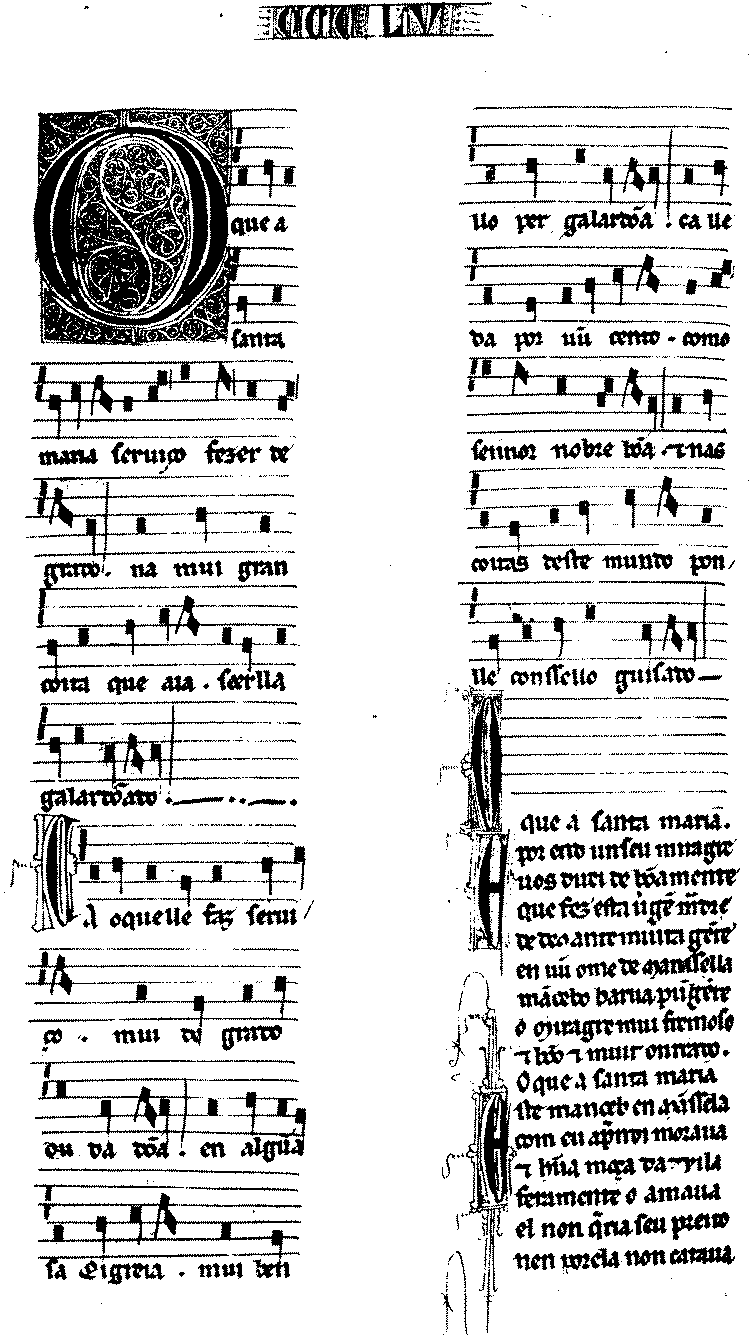 CCC LV
O que a
santa
maria seruiço fezer de
grado. na mui gran
coita que aia. seerlla
galardõado.
Ca oquelle faz serui
ço. mui de grado
ou da dõa. en algũa
sa eigreia. mui ben
llo per galardõa. ca lle
da por un cento. como
sennor nobre bõa. ⁊ nas
coitas deste mundo pon
lle conssello guisado
O que a santa maria.
E por end un seu miragre
uos direi de bõa mente
que fez esta uirgẽ madre
de deo ante muita gẽte
en un ome de Manssella
mãcebo barua põgẽte
o Miragre mui fremoso
⁊ bõo ⁊ muit onrrado.
O que a santa maria
Este manceb en Manssela
com eu aprendi moraua
⁊ hũa moça da vila
feramente o amaua
el non q̃ria seu preito
nen por ela non cataua